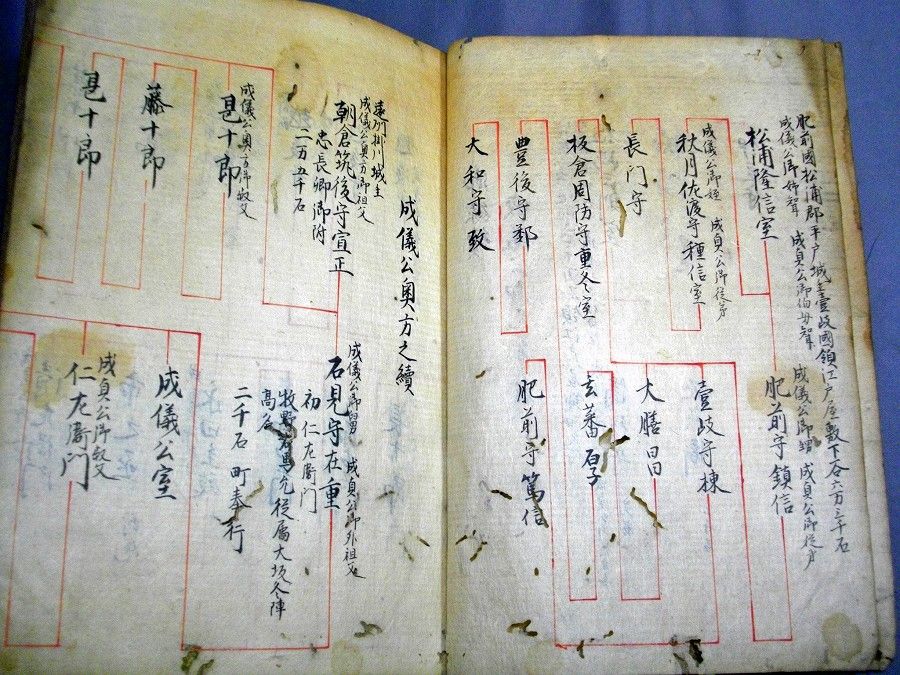 肥前國松浦郡平戸城主壹岐國領江戸屋敷下谷六万三千石
成儀公御姉聟 成貞公御伯母聟
松浦隆信室
成儀公御甥 成貞公御従弟
肥前守鎮信
成儀公御姪 成貞公御従弟
秋月佐渡守種信室
壹岐守棟
長門守
大膳昌
板倉周防守重冬室
玄蕃
豊後守鄰
肥前守篤信
大和守致
成儀公奥方之續
遠州掛川城主
成儀公奥方御祖父
朝倉筑後守宣正
忠長卿御附
二万五千石
成儀公御舅 成貞公御外祖父
石見守在重
初仁左衛門
牧野 允従属大坂冬陣
高
二千石 町奉行
成儀公奥方御叔父
甚十郎
成儀公室
藤十郎
成貞公御叔父
仁左衛門
甚十郎